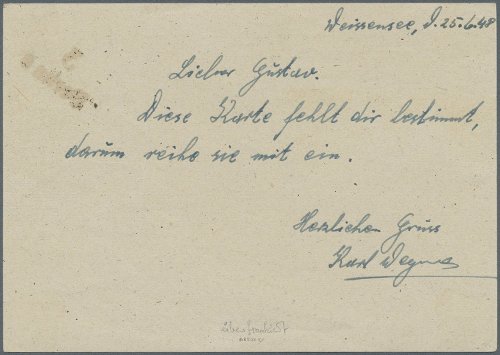 Weissensee, d. 25.6.48
Lieber Gustav.
Diese Karte fehlt dir bestimmt,
darum reihe sie mit ein.
Herzlichen Gruss
Karl